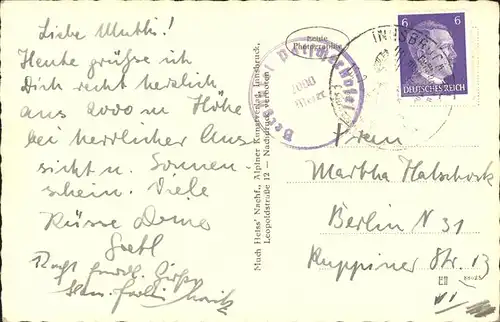 Liebe Mutti!
Heute grüße ich
Dich recht herzlich
aus 2000 m Höhe
bei herrlicher Aus
sicht u. Sonnen-
schein. Viele
Küsse Deine
Gretl
Recht
Much Heiss' Nachf., Alpiner Kunstverlag, Innsbruck,
Leopoldstraße 12 — Nachdruck verboten
Echte
Photographie
2000
Meter
INNSBRUCK
6 6
DEUTSCHES REICH
Frau
Martha
Berlin N 31
Ruppiner Str. 13
VI